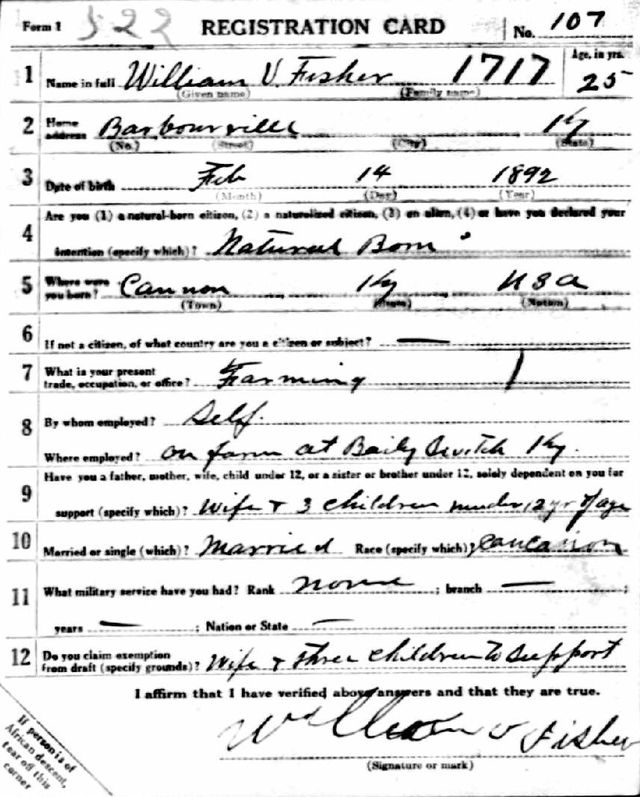 Form 1 522 REGISTRATION CARD No. 107
1 Name in full William V. Fisher 1717 Age, in yrs. 25
(Given name) (Family name)
2 Home address Barbourville Ky
(No.) (Street) (City) (State)
3 Date of birth Feb 14 1892
(Month) (Day) (Year)
4 Are you (1) a natural-born citizen, (2) a naturalized citizen, (3) an alien, (4) or have you declared your
intention (specify which)? Natural Born
5 Where were you born? Cannon Ky USA
(Town) (State) (Nation)
6 If not a citizen, of what country are you a citizen or subject? —
7 What is your present trade, occupation, or office? Farming
8 By whom employed? Self.
Where employed? on farm at Baily Switch Ky.
9 Have you a father, mother, wife, child under 12, or a sister or brother under 12, solely dependent on you for
support (specify which)? Wife & 3 children under 12 yr of age
10 Married or single (which)? Married Race (specify which)? Caucasion
11 What military service have you had? Rank none ; branch —
years — ; Nation or State —
12 Do you claim exemption from draft (specify grounds)? Wife & three children to support
I affirm that I have verified above answers and that they are true.
William V Fisher
(Signature or mark)
If person is of
African descent,
tear off this
corner